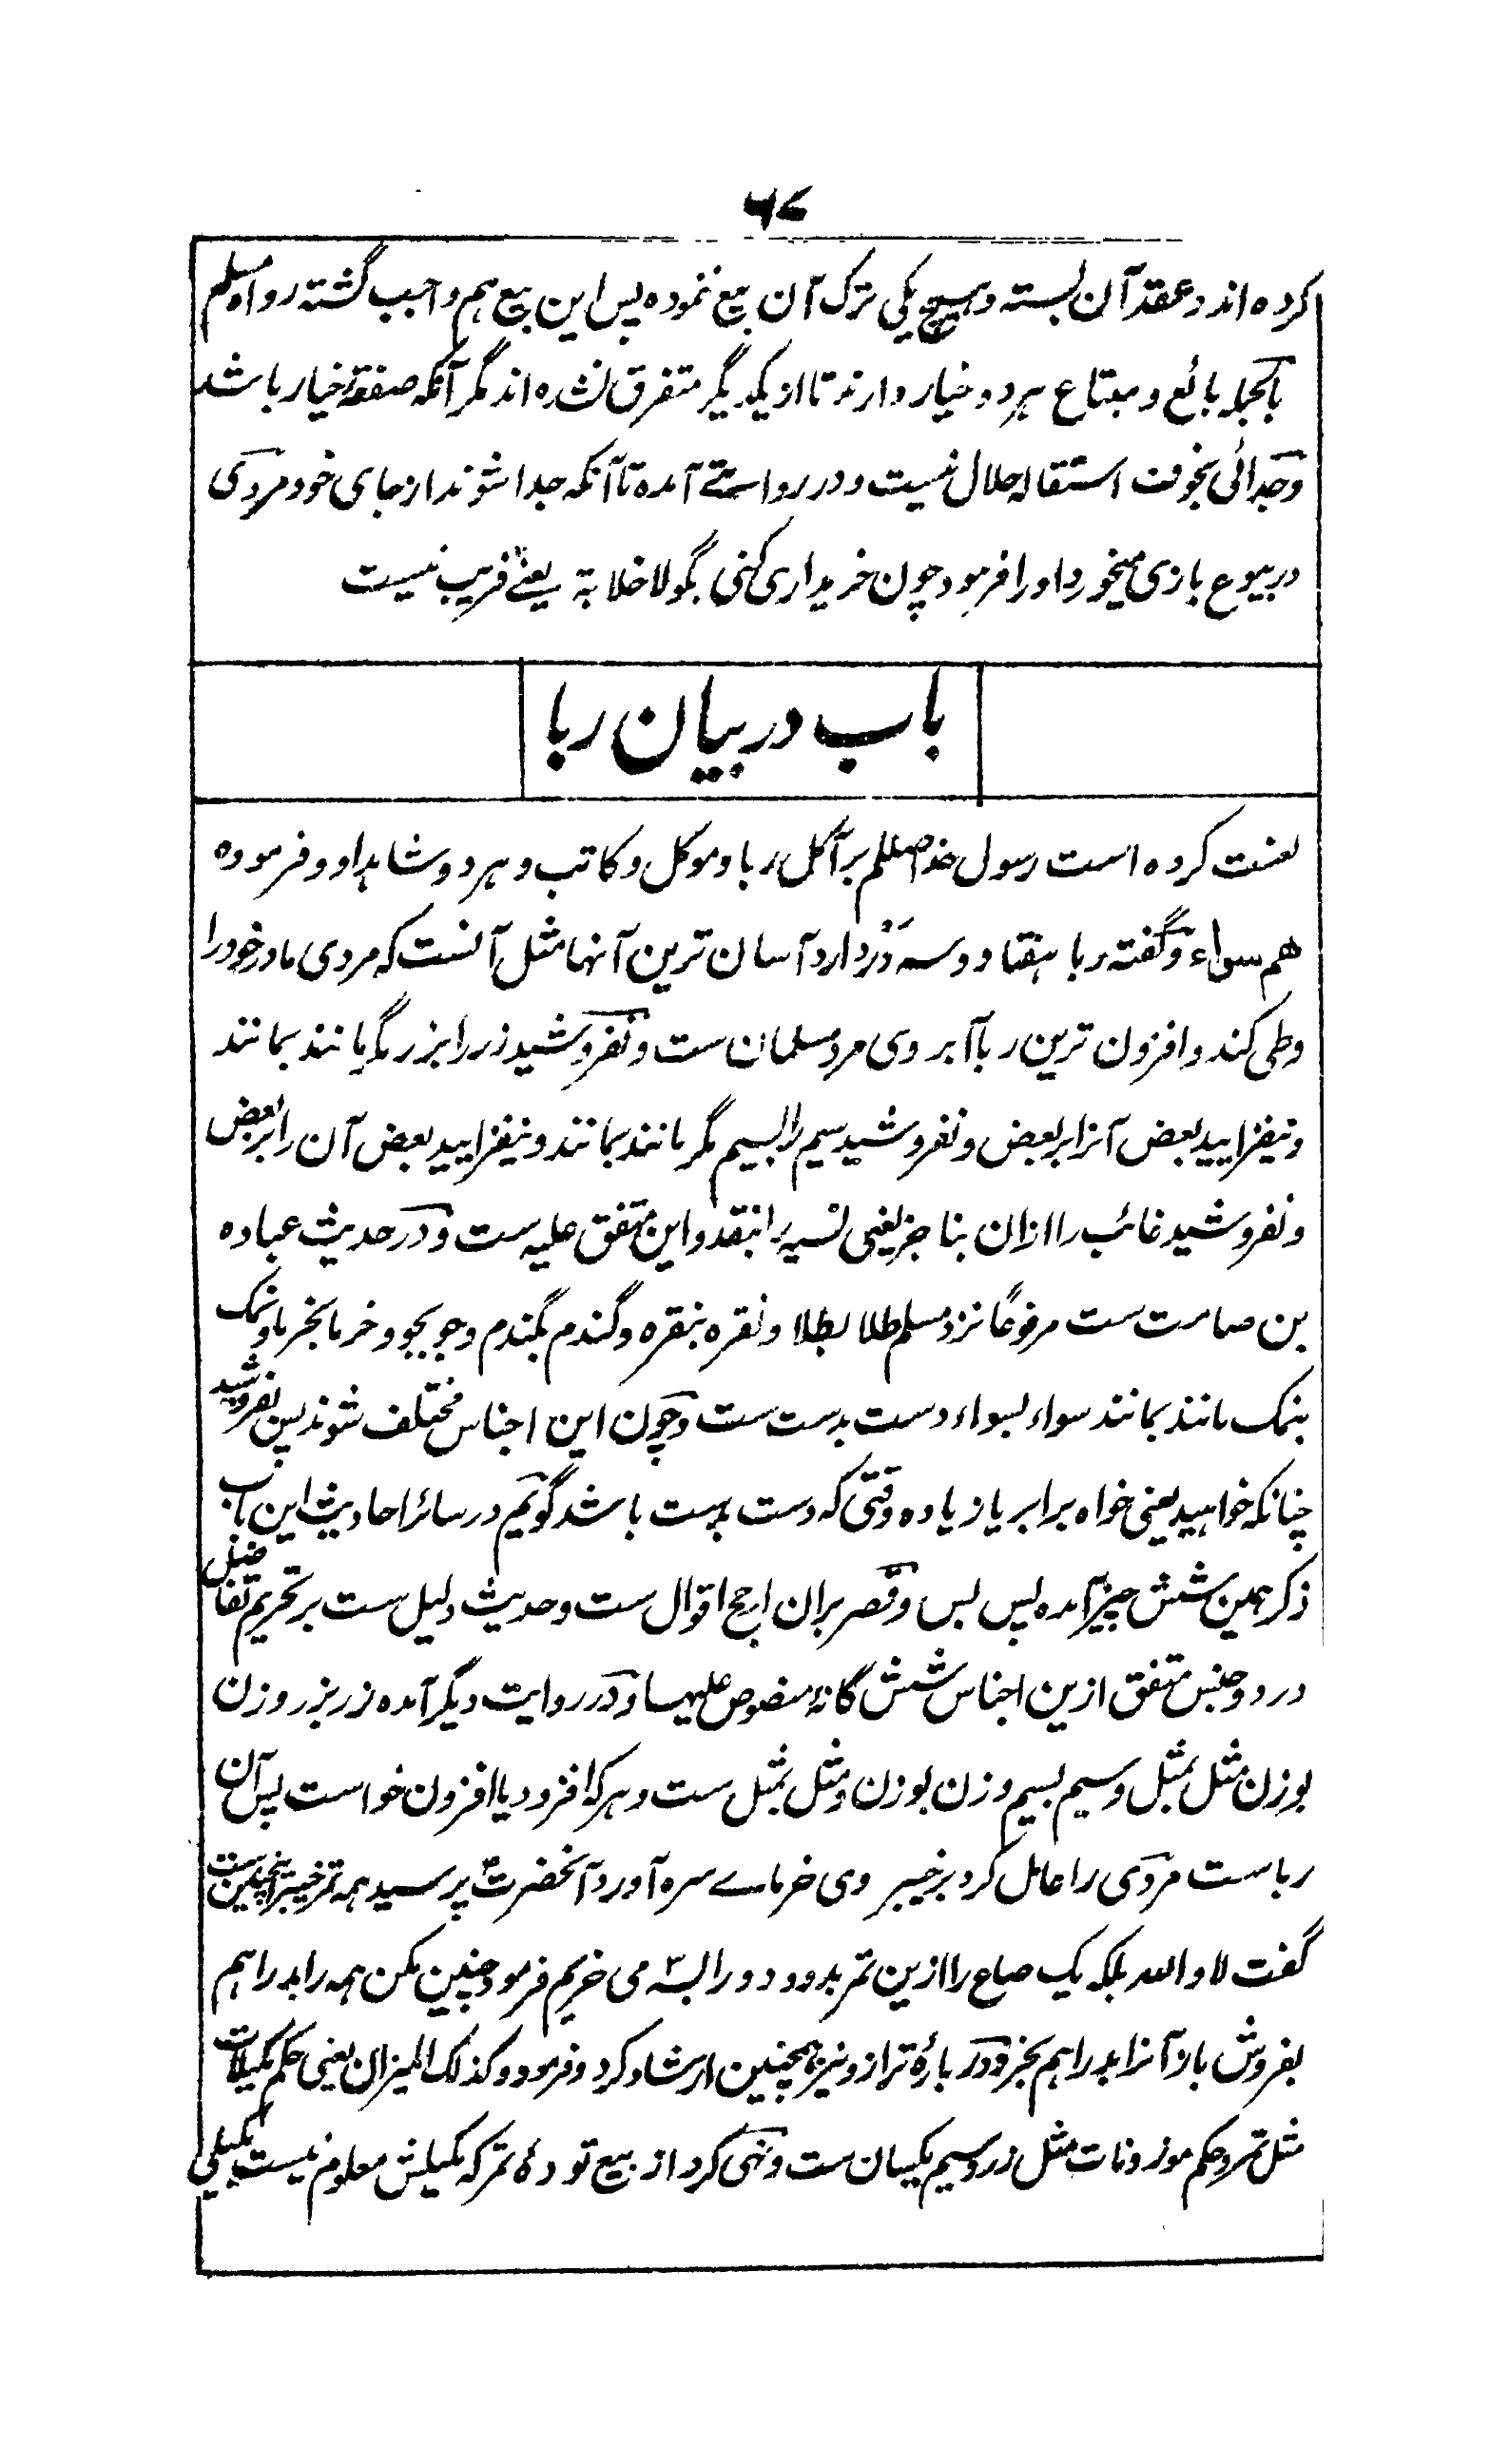 ۶۷
کرده اند و عقد آن بسته و هیچ یکی ترک آن بیع ننموده پس این بیع هم واجب گشته رواه مسلم
بالجمله بائع و مبتاع هر دو خیار دارند تا از یکدیگر متفرق نشده اند مگر آنکه صفقۂ خیار باشد
و جدائی بخوف استقاله حلال نیست و در روایتے آمده تا آنکه جدا شوند از جای خود مردی
در بیوع بازی میخورد او را فرمود چون خریداری کنی بگو لا خلابة یعنے فریب نیست
باب در بیان ربا
لعنت کرده است رسول خدا صللم بر آکل ربا و موکل و کاتب و هر دو شاهد او و فرموده
هم سواء و گفته ربا هفتاد و سه دَر دارد آسان ترین آنها مثل آنست که مردی مادر خود را
وطی کند و افزون ترین ربا آبروی مرد مسلمان ست و نفروشید زر را بزر مگر مانند بمانند
و نیفزایید بعض آنرا بر بعض و نفروشید سیم را بسیم مگر مانند بمانند و نیفزایید بعض آن را بر بعض
و نفروشید غائب را ازان بناجز یعنی نسیه را بنقد و این متفق علیه ست و در حدیث عباده
بن صامت ست مرفوعًا نزد مسلم طلا بطلا و نقره بنقره و گندم بگندم و جو بجو و خرما بخرما و نمک
بنمک مانند بمانند سواء بسواء دست بدست ست و چون این اجناس مختلف شوند پس بفروشید
چنانکه خواهید یعنی خواه برابر یا زیاده وقتی که دست بدست باشد گویم در سائر احادیث این باب
ذکر همین شش چیز آمده پس بس و قصر بران ارجح اقوال ست و حدیث دلیل ست بر تحریم تفاضل
در دو جنس متفق ازین اجناس شش گانۂ منصوص علیها و در روایت دیگر آمده زر بزر وزن
بوزن مثل بمثل و سیم بسیم وزن بوزن و مثل بمثل ست و هر که افزود یا افزون خواست پس آن
رباست مردی را عامل کرد بر خیبر وی خرمای سره آورد آنحضرتؐ پرسید همه تمر خیبر اینچنین ست
گفت لا والله بلکه یک صاع را ازین تمر بدو و دو را بسه می خریم فرمود چنین مکن همه را بدراهم
بفروش باز آنرا بدراهم بخر و در بارۂ ترازو نیز همچنین ارشاد کرد و فرمود وکذلک المیزان یعنی حکم مکیلات
مثل تمر و حکم موزونات مثل زر و سیم یکسان ست و نهی کرد از بیع تودۂ تمر که مکیلش معلوم نیست بکیلی